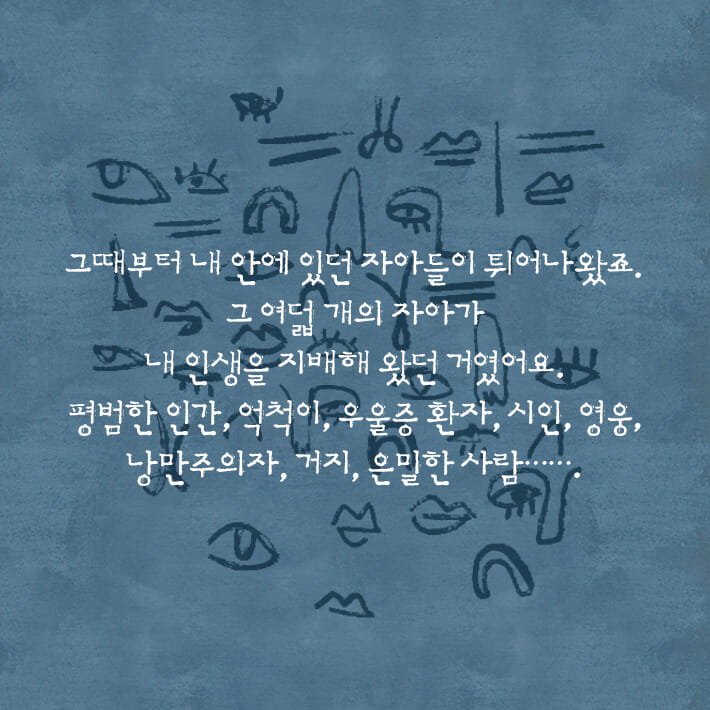 그때부터 내 안에 있던 자아들이 튀어나왔죠.
그 여덟 개의 자아가
내 인생을 지배해 왔던 거였어요.
평범한 인간, 억척이, 우울증 환자, 시인, 영웅,
낭만주의자, 거지, 은밀한 사람…….